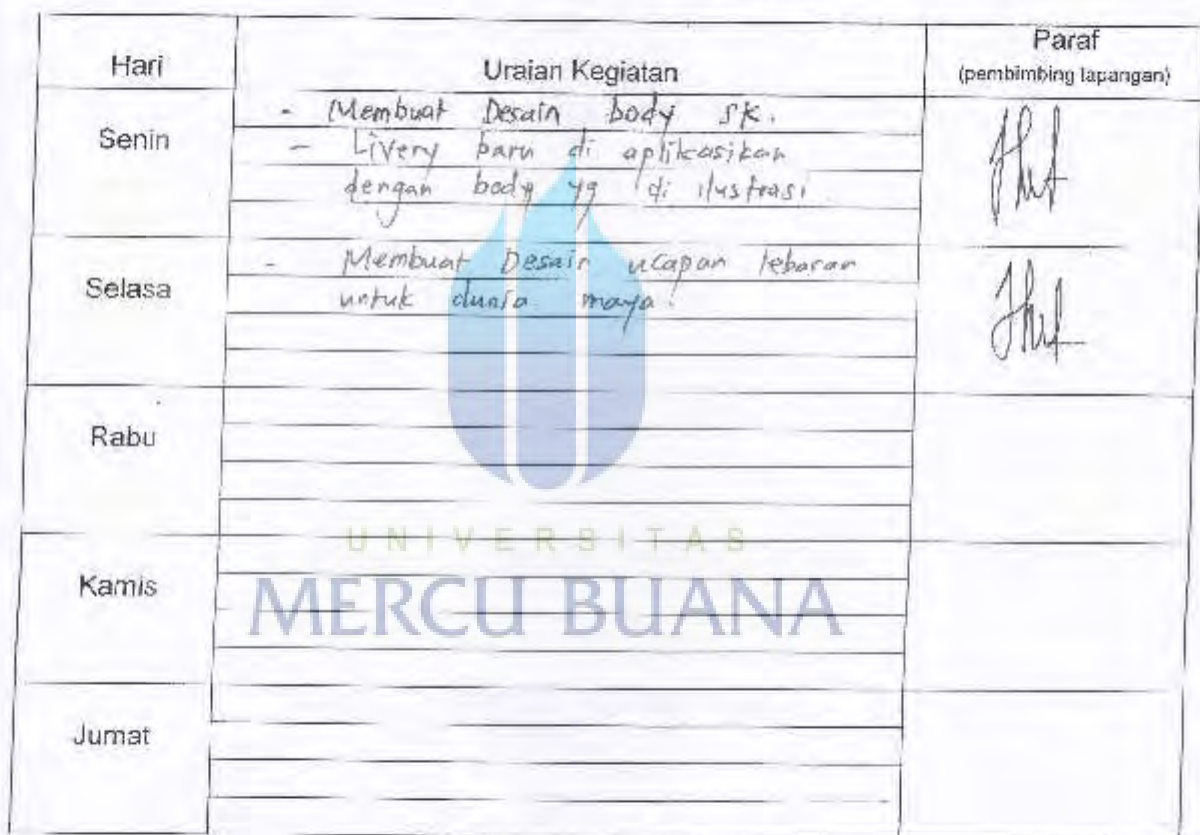 Hari Uraian Kegiatan Paraf
(pembimbing lapangan)
Senin
- Membuat Desain body SK.
- Livery baru di aplikasikan
dengan body yg di ilustrasi
Selasa
- Membuat Desain ucapan lebaran
untuk dunia maya.
Rabu
Kamis
Jumat
UNIVERSITAS
MERCU BUANA